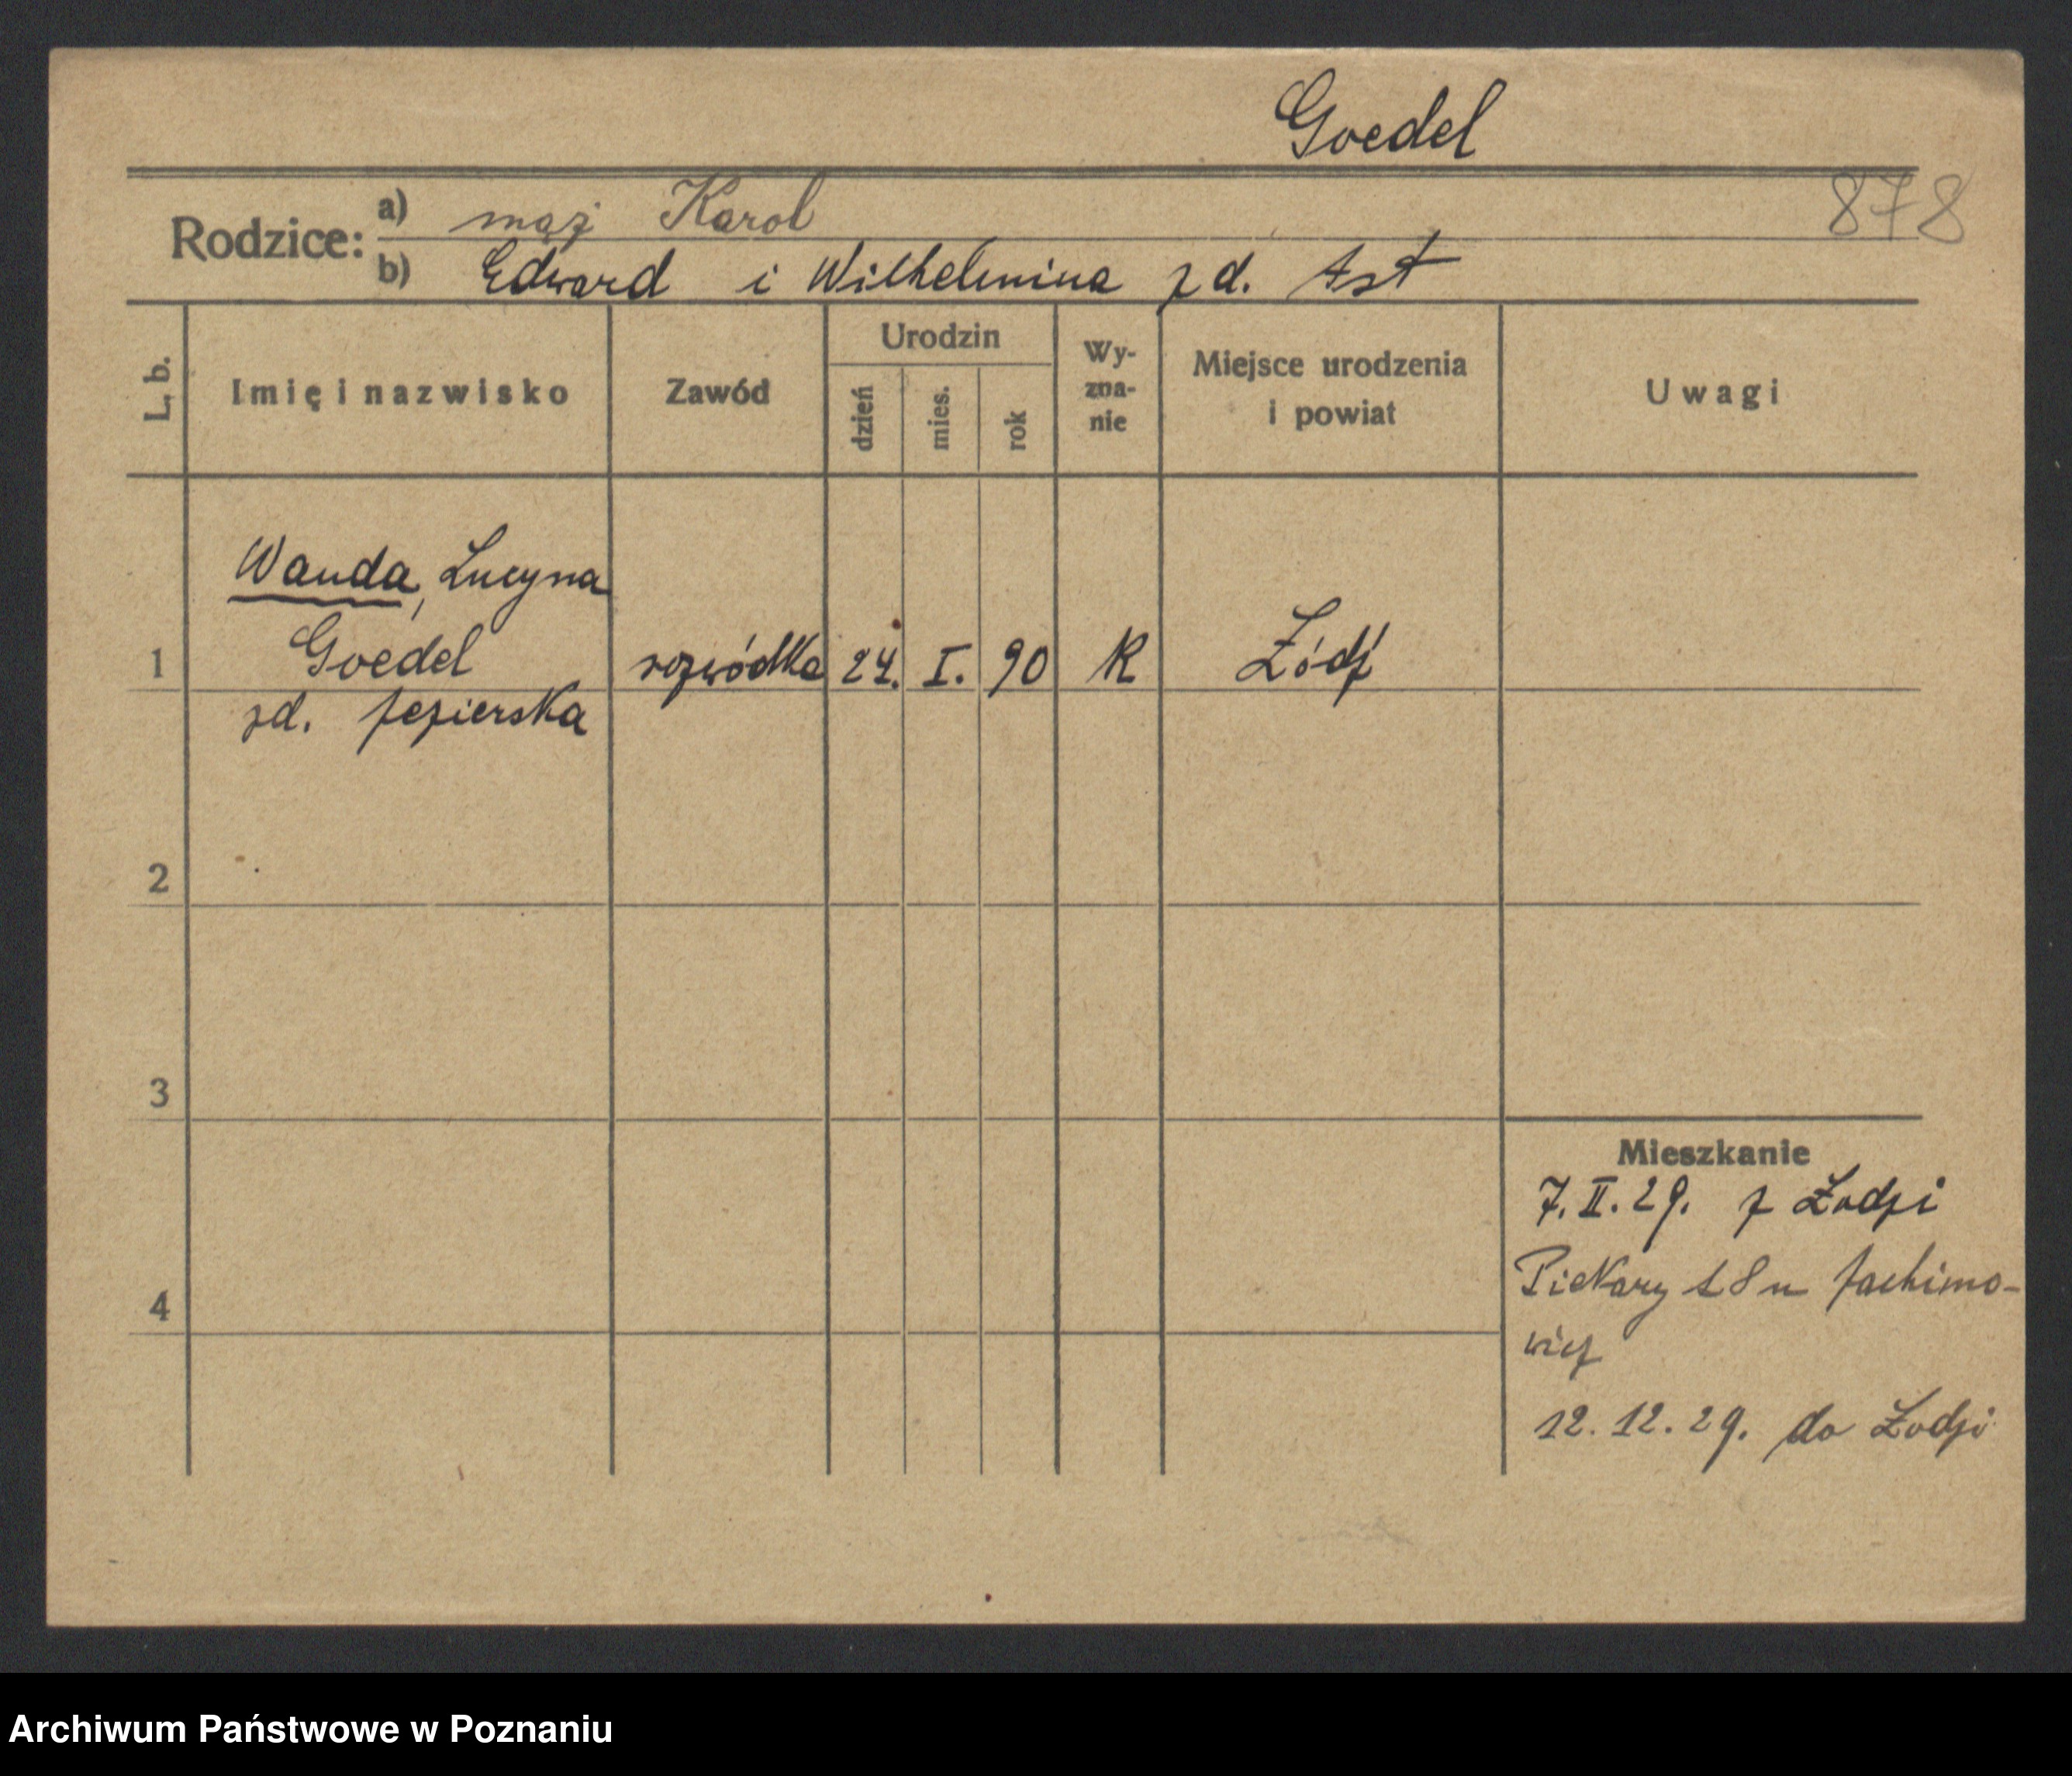 Goedel
878
Rodzice: a) mąż Karol
b) Edward i Wilhelmina zd. Ast
L. b. Imię i nazwisko Zawód Urodzin dzień mies. rok Wy-zna-nie Miejsce urodzenia i powiat Uwagi
Wanda, Lucyna
1 Goedel rozwódka 24. I. 90 K Łódź
zd. Jezierska
2
3
Mieszkanie
7. II. 29. z Łodzi
Piekary 18 u Jachimo-
4
wicz
12. 12. 29. do Łodzi
Archiwum Państwowe w Poznaniu